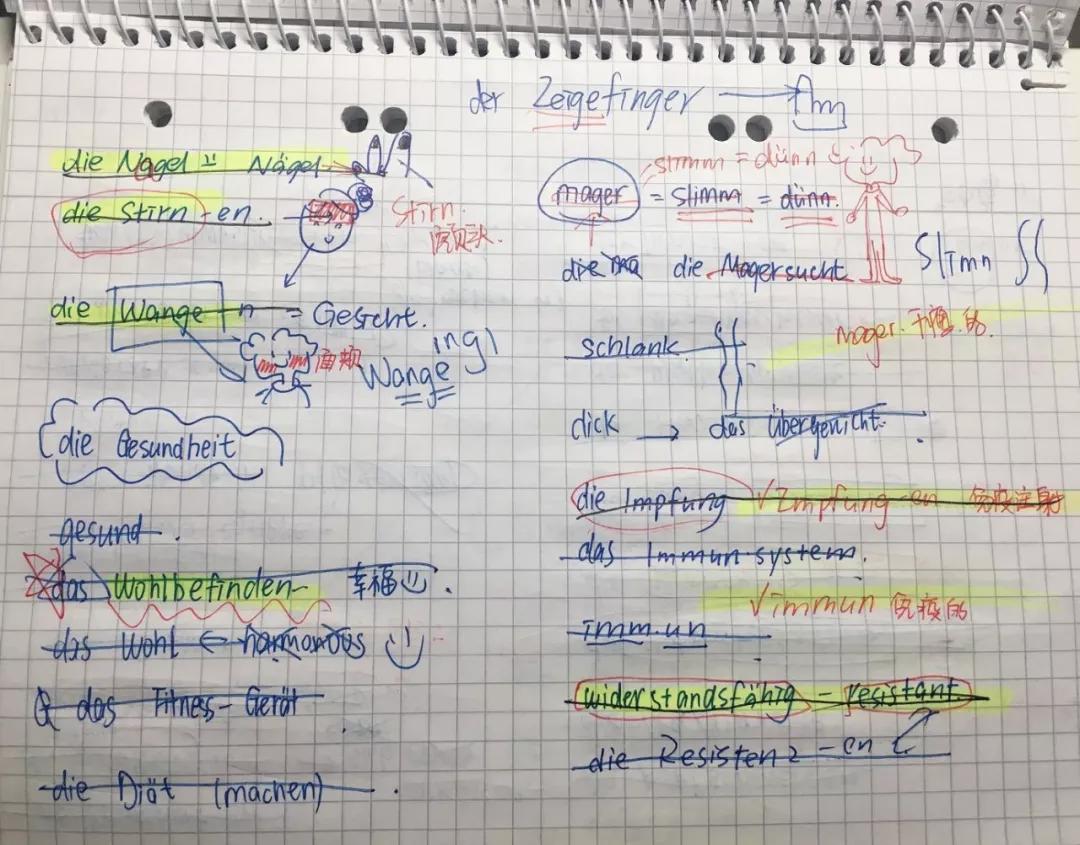 der Zeigefinger
die Nagel = Nägel
die Stirn -en.
Stirn.
die Wange -n = Gesicht.
面颊
Wange
ing)
die Gesundheit
gesund.
das Wohlbefinden 幸福
das Wohl ← harmonios
das Fitness-Gerät
die Diät (machen).
slimm = dünn
mager = slimm = dünn.
die Magersucht
Slimn
mager. 干瘪的
schlank.
dick → das Übergewicht.
die Impfung √Impfung -en 免疫注射
das Immunsystem.
√immun 免疫的
imm.un
widerstandsfähig - resistant.
die Resistenz -en